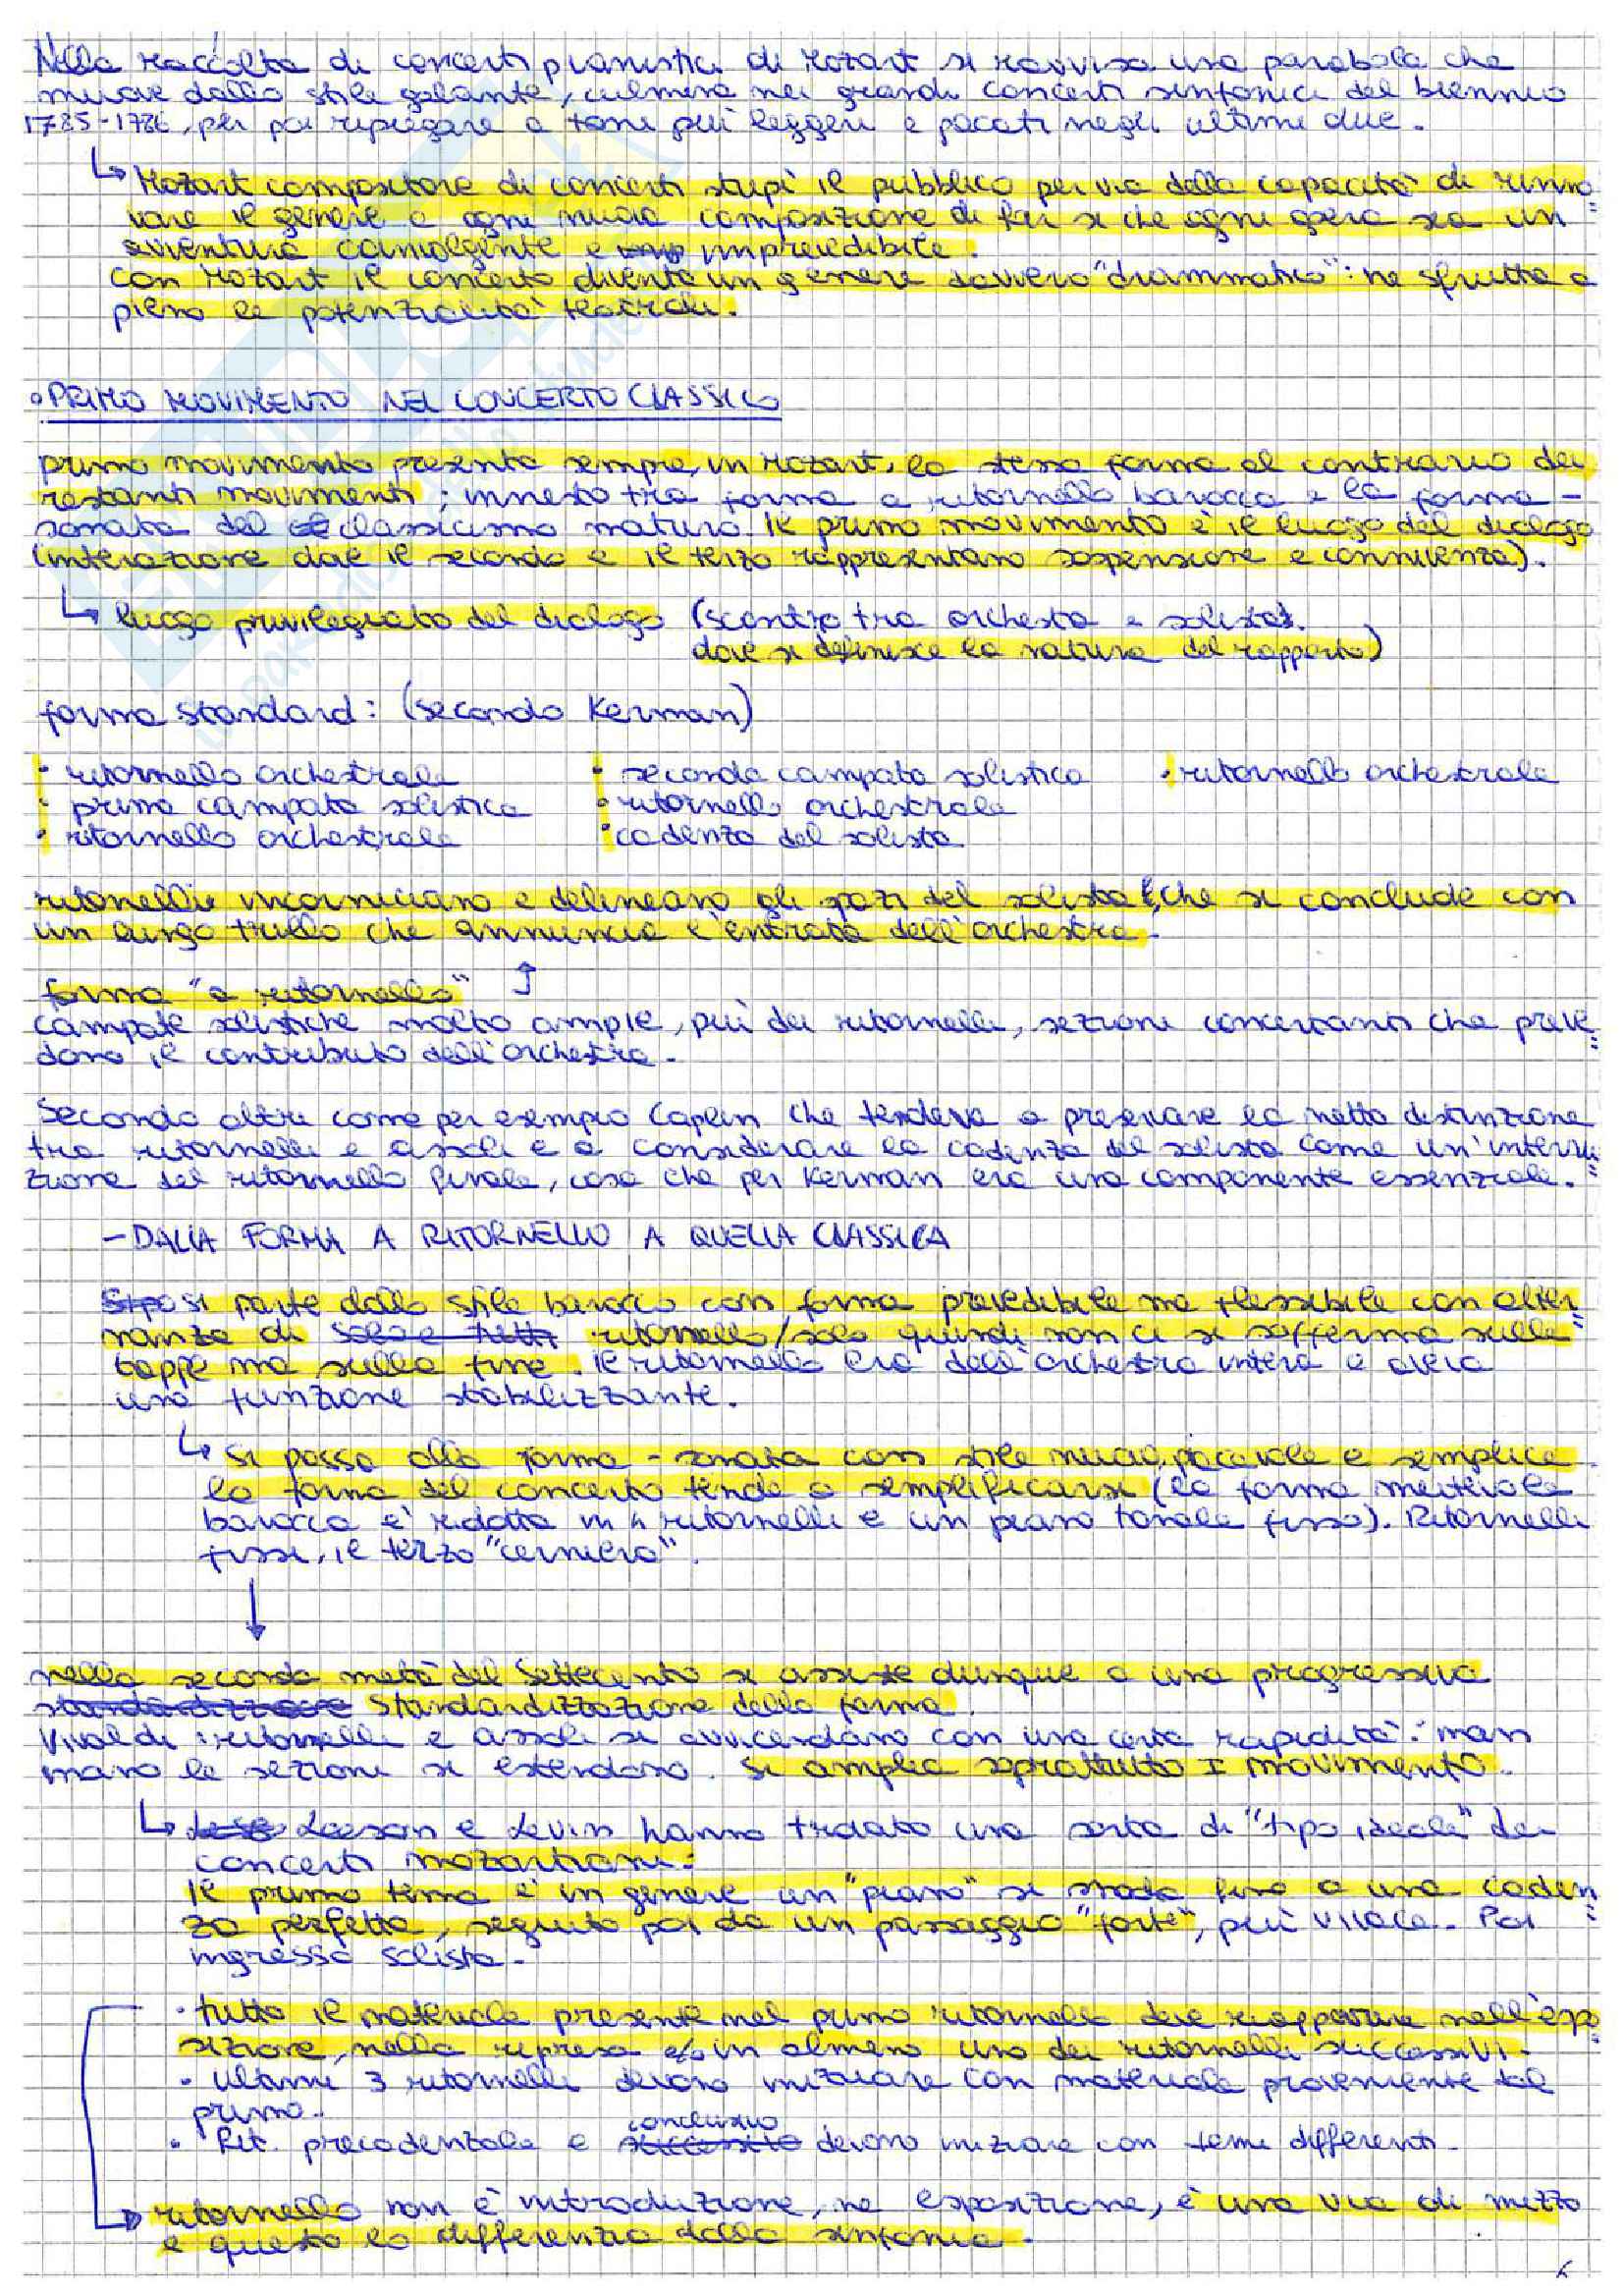 Nella raccolta di concerti pianistici di Mozart si ravvisa una parabola che
muove dallo stile galante, culmina nei grandi concerti sinfonici del biennio
1785-1786, per poi ripiegare a toni più leggeri e pacati negli ultimi due.
↳ Mozart compositore di concerti stupì il pubblico per via della capacità di rinno=
vare il genere e ogni nuova composizione di far sì che ogni opera sia un
avventura coinvolgente e imprevedibile.
con Mozart il concerto diventa un genere davvero "drammatico": ne sfrutta a
pieno le potenzialità teatrali.
• PRIMO MOVIMENTO NEL CONCERTO CLASSICO
primo movimento presenta sempre, in Mozart, la stessa forma al contrario dei
restanti movimenti; innesto tra forma a ritornello barocca e la forma-
sonata del classicismo maturo. Il primo movimento è il luogo del dialogo
(interazione dove il secondo e il terzo rappresentano sospensione e connivenza).
↳ luogo privilegiato del dialogo (scontro tra orchestra e solista.
dove si definisce la natura del rapporto)
forma standard: (secondo Kerman)
• ritornello orchestrale • seconda campata solistica • ritornello orchestrale
• prima campata solistica • ritornello orchestrale
• ritornello orchestrale • cadenza del solista
ritornelli incorniciano e delineano gli spazi del solista, che si conclude con
un lungo trillo che annuncia l'entrata dell'orchestra.
forma "a ritornello" ↑
campate solistiche molto ampie, più dei ritornelli, sezioni concertanti che preve=
dono il contributo dell'orchestra.
Secondo altri come per esempio Caplin che tendeva a preservare la netta distinzione
tra ritornelli e assoli e a considerare la cadenza del solista come un'interru=
zione del ritornello finale, cosa che per Kerman era una componente essenziale.
- DALLA FORMA A RITORNELLO A QUELLA CLASSICA
si parte dallo stile barocco con forma prevedibile ma flessibile con alter=
nanza di solo e tutti ritornello/solo quindi non ci si sofferma sulle
tappe ma sulla fine. Il ritornello era dell'orchestra intera e aveva
una funzione stabilizzante.
↳ Si passa alla forma-sonata con stile nuovo, piacevole e semplice.
la forma del concerto tende a semplificarsi (la forma mutevole
barocca è ridotta in 4 ritornelli e un piano tonale fisso). Ritornelli
fissi, il terzo "cerniera".
↓
nella seconda metà del Settecento si assiste dunque a una progressiva
standardizzazione della forma.
Vivaldi: ritornelli e assoli si avvicendano con una certa rapidità: man
mano le sezioni si estendono. Si amplia soprattutto I movimento.
↳ Leeson e Levin hanno trovato una sorta di "tipo ideale" dei
concerti mozartiani:
Il primo tema è in genere un "piano" si snoda fino a una caden=
za perfetta, seguito poi da un passaggio "forte", più vivace. Poi
ingresso solista.
• tutto il materiale presente nel primo ritornello deve riapparire nell'espo=
sizione, nella ripresa e/o in almeno uno dei ritornelli successivi.
• ultimi 3 ritornelli devono iniziare con materiale proveniente dal
primo.
• Rit. precadenzale e conclusivo devono iniziare con temi differenti.
→ ritornello non è introduzione, ne esposizione, è una via di mezzo
e questo lo differenzia dalla sinfonia.